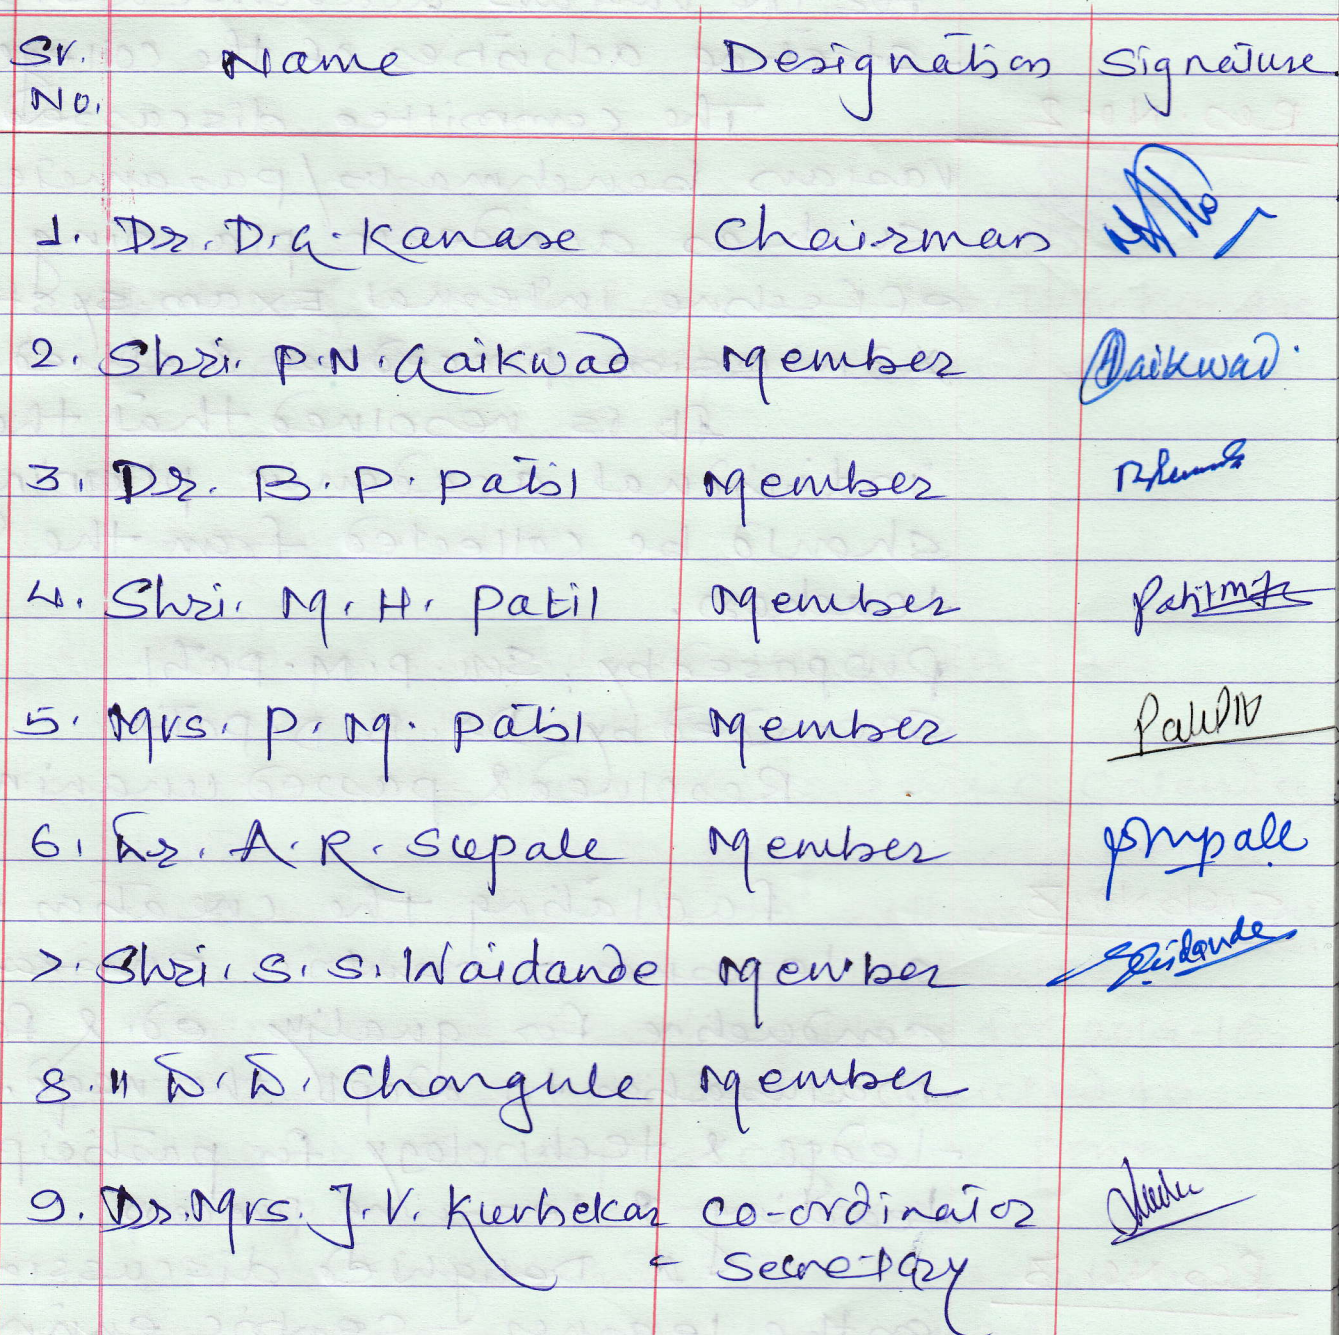 Sr. Name Designation Signature
No.
1. Dr. D.G. Kanase Chairman
2. Shri. P.N. Gaikwad Member Gaikwad
3. Dr. B. P. Patil Member
4. Shri. M. H. Patil Member Patil
5. Mrs. P. M. Patil Member
6. Dr. A. R. Supale Member
7. Shri. S. S. Waidande Member
8. " D. D. Chougule Member
9. Dr. Mrs. J. V. Kurhekar Co-ordinator
- Secretary